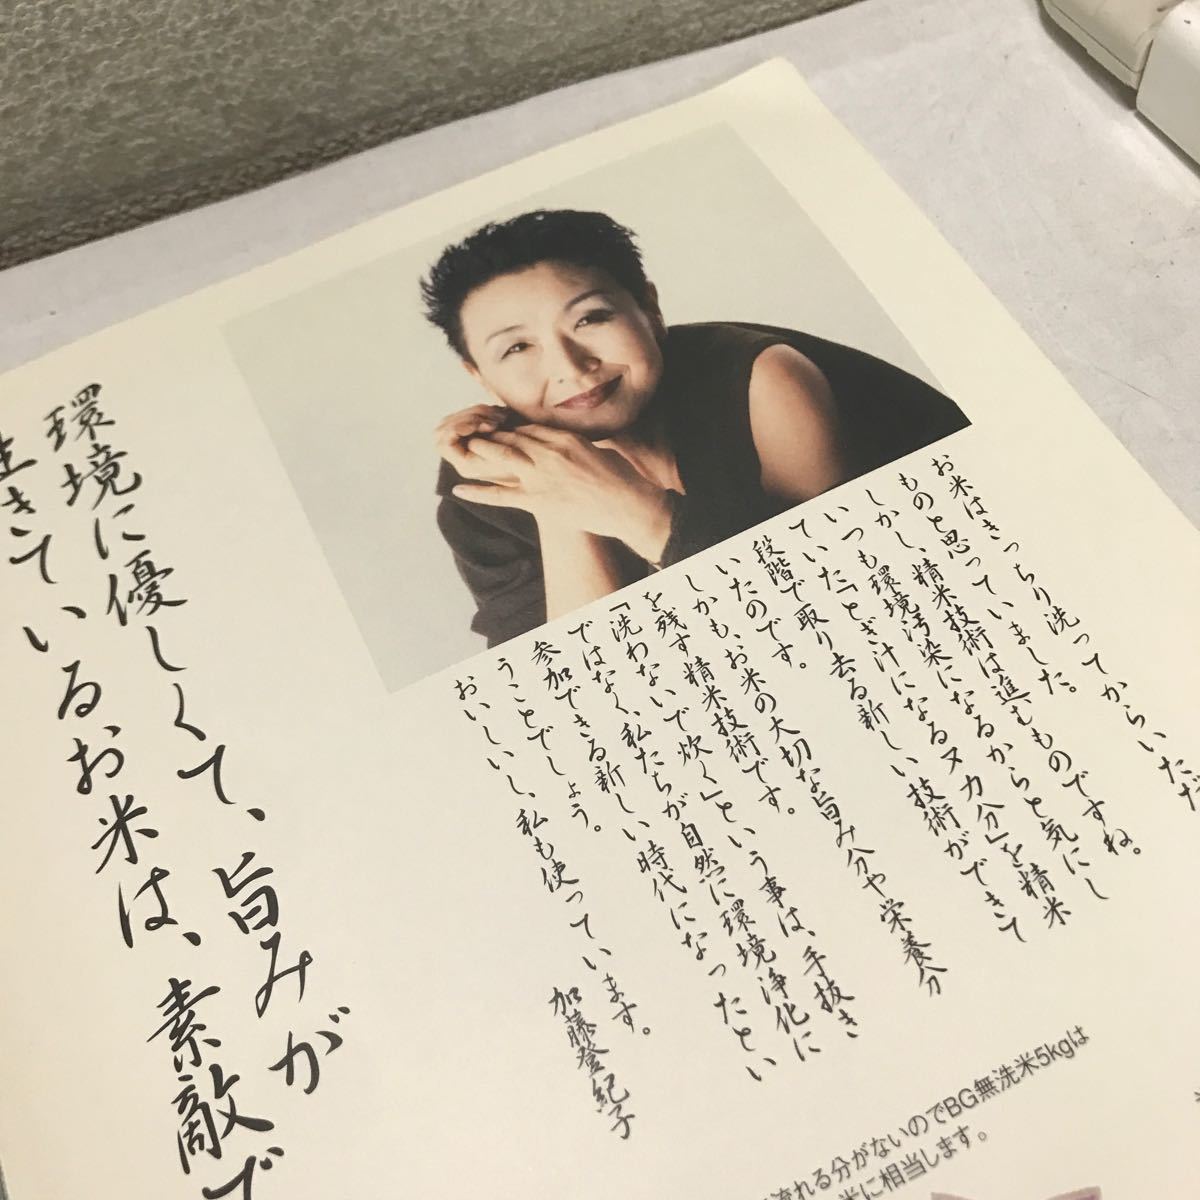 環境に優しくて、旨みが
生きているお米は、素敵で
お米はきっちり洗ってからいただ
ものと思っていました。
しかし、精米技術は進むものですね。
いつも環境汚染になるからと気にし
ていた「とぎ汁になるヌカ分」を精米
段階で取り去る新しい技術ができて
いたのです。
しかも、お米の大切な旨み分や栄養分
を残す精米技術です。
「洗わないで炊く」という事は、手抜き
ではなく、私たちが自然に環境浄化に
参加できる新しい時代になったとい
うことでしょう。
おいしいし、私も使っています。
加藤登紀子
流れる分がないのでBG無洗米5kgは
米に相当します。